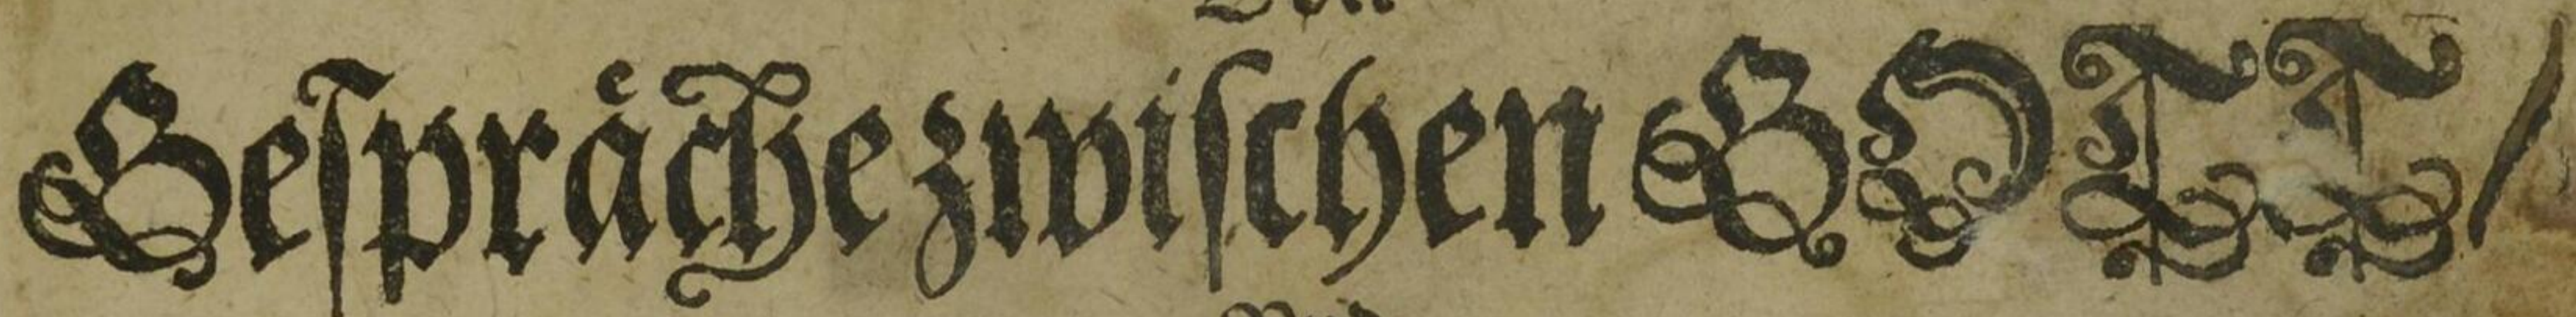 Geſpraͤche zwiſchen GOTT/